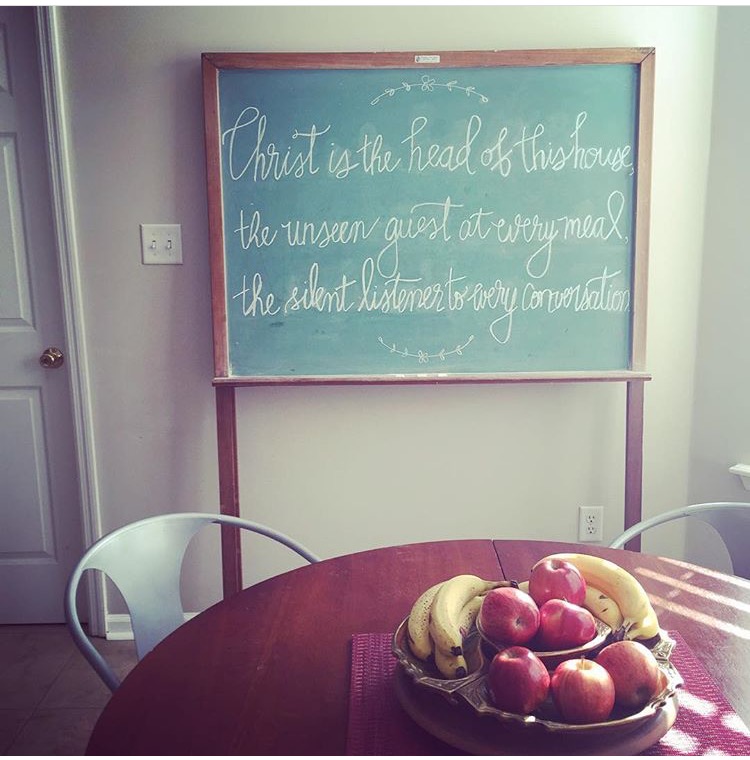 Christ is the head of this house,
the unseen guest at every meal,
the silent listener to every conversation